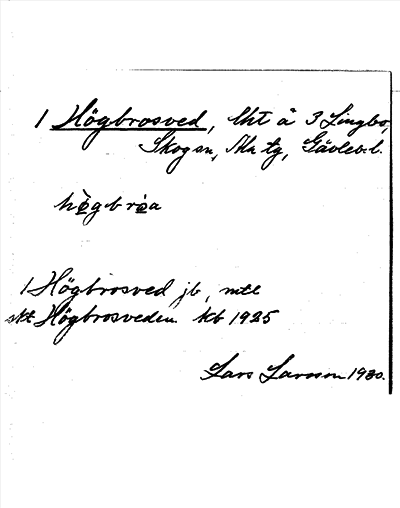 1 Högbrosved, lht å 3 Lingbo,
Skogsn, Åla tg, Gävleb:l.
högbrøa
1 Högbrosved jb, mtl
skt Högbrosveden kb 1925
Lars Larsson 1930.